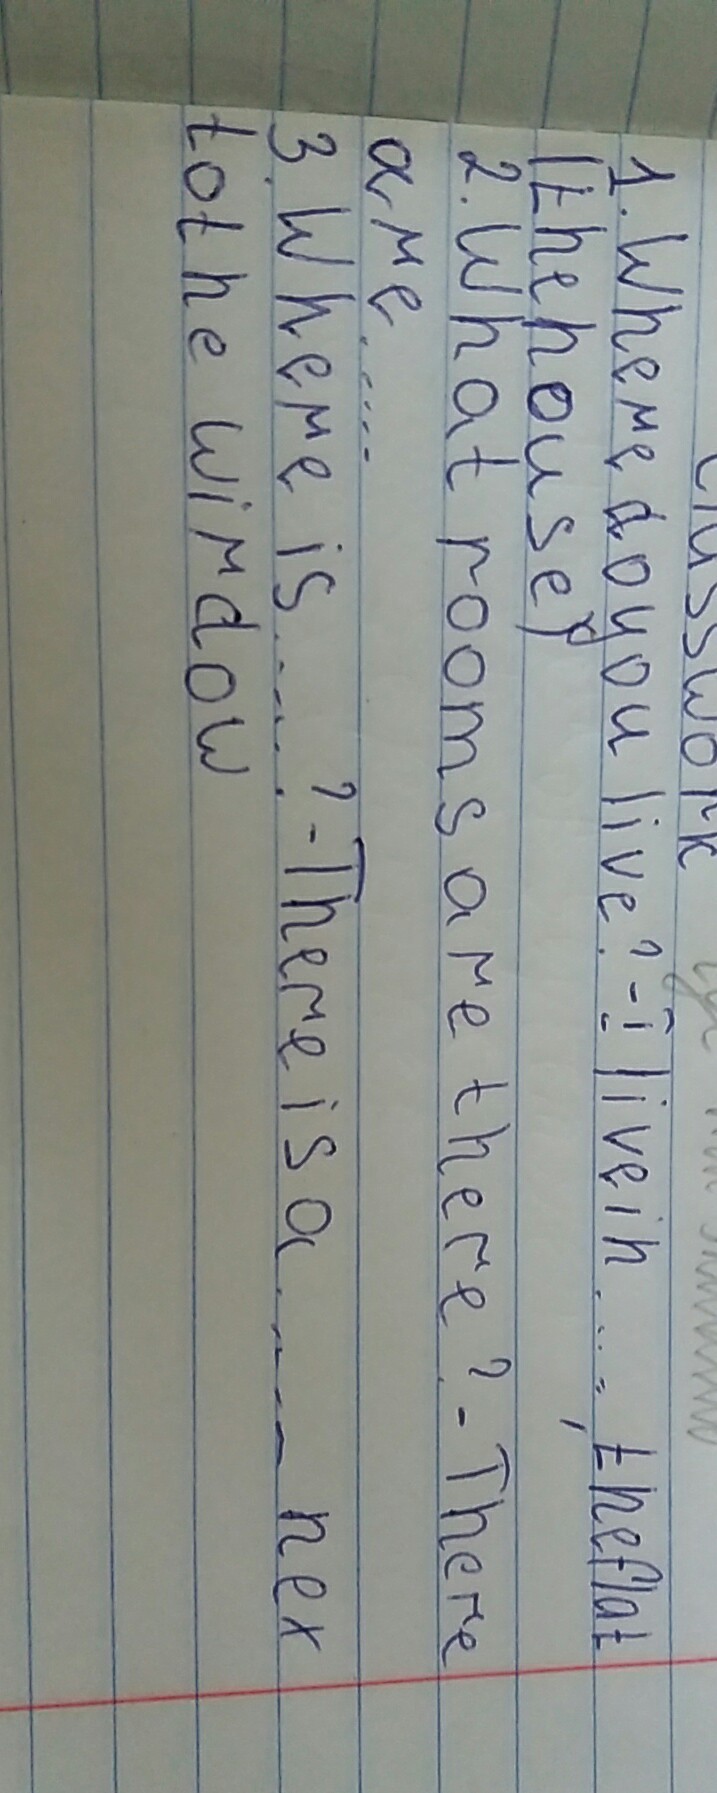 Classwork
1. Where do you live? - I live in ...., the flat
(the house)
2. What rooms are there? - There
are.....
3. Where is......? - There is a....... nex
to the window